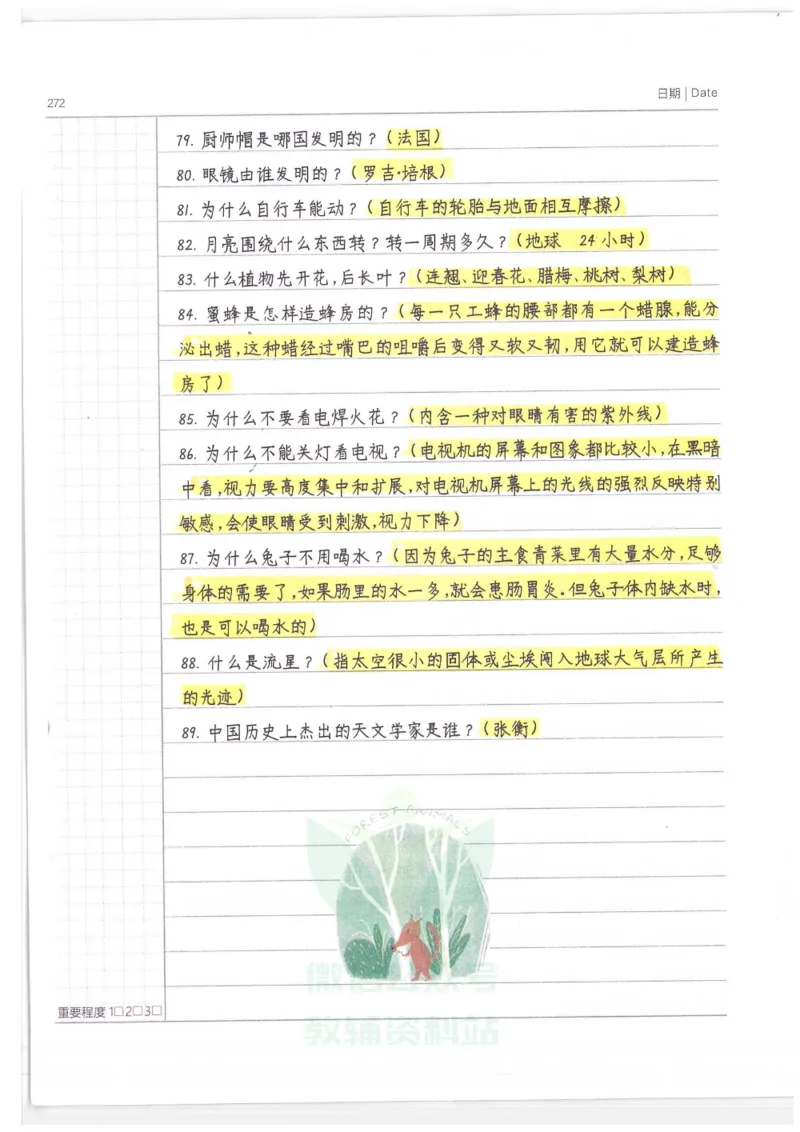 272
日期 | Date
79. 厨师帽是哪国发明的？(法国)
80. 眼镜由谁发明的？(罗吉·培根)
81. 为什么自行车能动？(自行车的轮胎与地面相互摩擦)
82. 月亮围绕什么东西转？转一周期多久？(地球 24小时)
83. 什么植物先开花,后长叶？(连翘、迎春花、腊梅、桃树、梨树)
84. 蜜蜂是怎样造蜂房的？(每一只工蜂的腰部都有一个蜡腺,能分
泌出蜡,这种蜡经过嘴巴的咀嚼后变得又软又韧,用它就可以建造蜂
房了)
85. 为什么不要看电焊火花？(内含一种对眼睛有害的紫外线)
86. 为什么不能关灯看电视？(电视机的屏幕和图象都比较小,在黑暗
中看,视力要高度集中和扩展,对电视机屏幕上的光线的强烈反映特别
敏感,会使眼睛受到刺激,视力下降)
87. 为什么兔子不用喝水？(因为兔子的主食青菜里有大量水分,足够
身体的需要了,如果肠里的水一多,就会患肠胃炎.但兔子体内缺水时,
也是可以喝水的)
88. 什么是流星？(指太空很小的固体或尘埃闯入地球大气层所产生
的光迹)
89. 中国历史上杰出的天文学家是谁？(张衡)
FOREST ANIMALS
微信公众号
教辅资料站
重要程度 1□2□3□